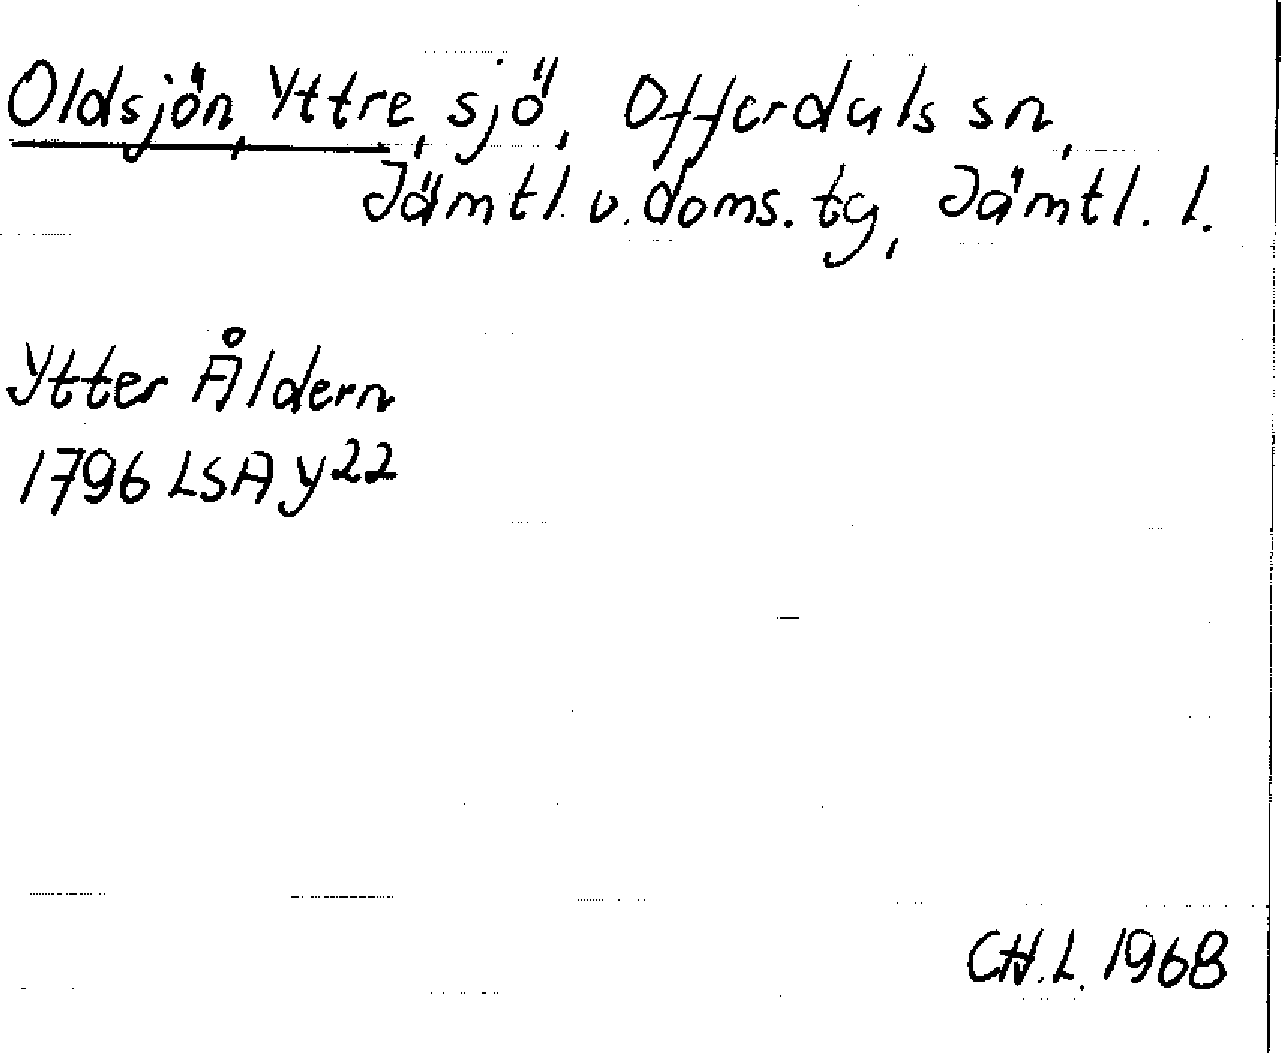 Oldsjön, Yttre, sjö, Offerdals sn,
Jämtl. v. doms. tg, Jämtl. l.
Ytter Åldern
1796 LSA Y22
CH.L. 1968